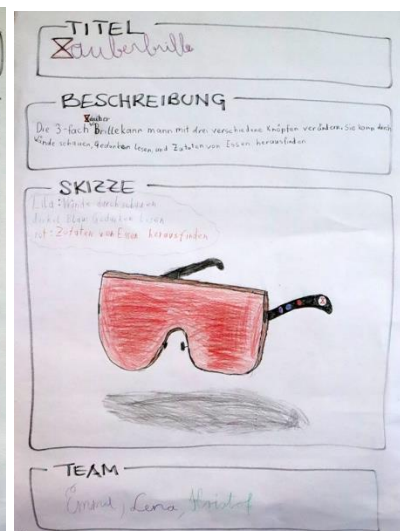 TITEL
Zauberbrille
BESCHREIBUNG
Zauber
Die 3-fach Brille kann mann mit drei verschiedene Knöpfen verändern. Sie kann durch
Wände schauen, Gedanken lesen, und Zutaten von Essen herausfinden
SKIZZE
Lila: Wände durchschauen
Dunkel Blau: Gedanken lesen
rot: Zutaten von Essen herausfinden
TEAM
Lena, Kristof